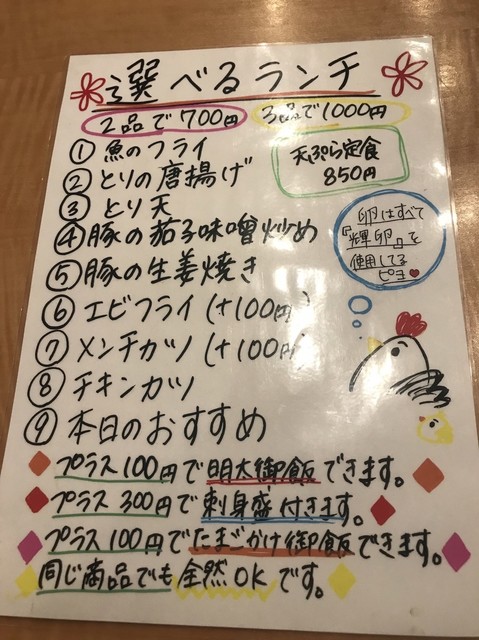 選べるランチ
2品で700円 3品で1000円
① 魚のフライ
② とりの唐揚げ
③ とり天
④ 豚の茄子味噌炒め
⑤ 豚の生姜焼き
⑥ エビフライ (+100円)
⑦ メンチカツ (+100円)
⑧ チキンカツ
⑨ 本日のおすすめ
天ぷら定食
850円
卵はすべて
『輝卵』を
使用してる
ピヨ
プラス100円で明太御飯できます。
プラス300円で刺身盛付きます。
プラス100円でたまごかけ御飯できます。
同じ商品でも全然OKです。